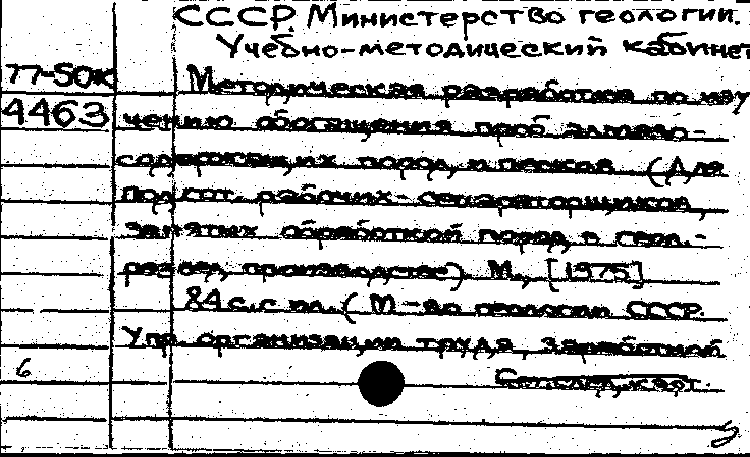 СССР. Министерство геологии.
Учебно-методический кабинет
77-50к Методическая разработка по изу
4463 чению обогащения проб алмазо-
содержащих пород и песков (Для
подгот. рабочих-сепараторщиков,
занятых обработкой пород в геол.-
развед. производстве). М., [1975]
84 с. с ил. (М-во геологии СССР.
Упр. организации труда, заработной
6
См. след. карт.